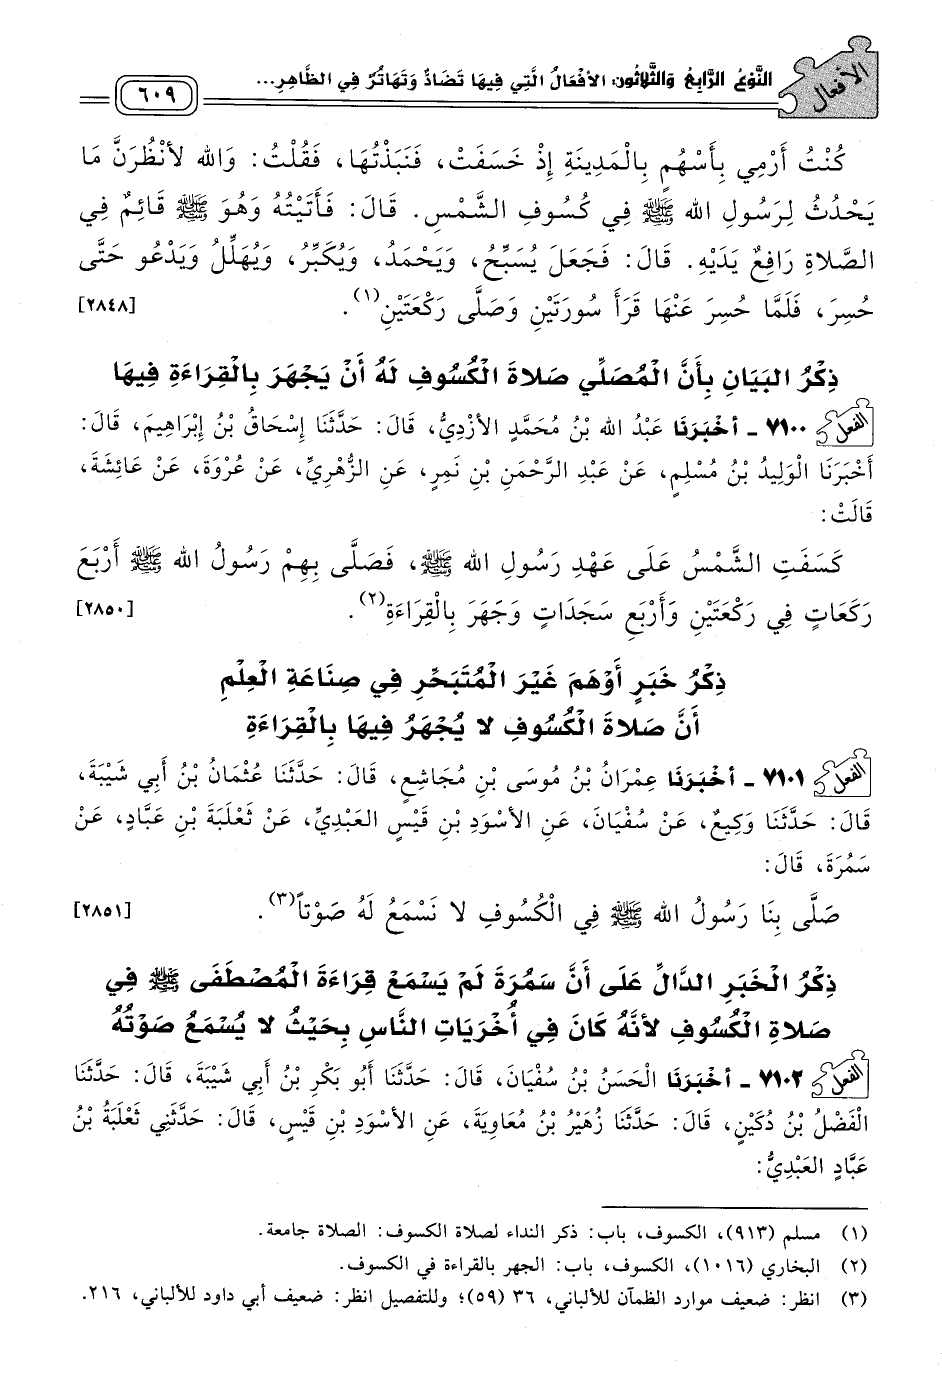 الأفعال
النَّوْعُ الرَّابِعُ وَالثَّلاثُون: الأفْعَالُ الَّتِي فِيهَا تَضَادٌّ وَتَهَاتُرٌ فِي الظَّاهِرِ...
٦٠٩
كُنْتُ أَرْمِي بِأَسْهُمٍ بِالْمَدِينَةِ إِذْ خَسَفَتْ، فَنَبَذْتُهَا، فَقُلْتُ: وَالله لأنْظُرَنَّ مَا
يَحْدُثُ لِرَسُولِ الله ﷺ فِي كُسُوفِ الشَّمْسِ. قَالَ: فَأَتَيْتُهُ وَهُوَ ﷺ قَائِمٌ فِي
الصَّلاةِ رَافِعٌ يَدَيْهِ. قَالَ: فَجَعَلَ يُسَبِّحُ، وَيَحْمَدُ، وَيُكَبِّرُ، وَيُهَلِّلُ وَيَدْعُو حَتَّى
حُسِرَ، فَلَمَّا حُسِرَ عَنْهَا قَرَأَ سُورَتَيْنِ وَصَلَّى رَكْعَتَيْنِ(١). [٢٨٤٨]
ذِكْرُ البَيَانِ بِأَنَّ الْمُصَلِّي صَلاةَ الْكُسُوفِ لَهُ أَنْ يَجْهَرَ بِالْقِرَاءَةِ فِيهَا
الفعل ٧١٠٠ - أخْبَرَنَا عَبْدُ الله بْنُ مُحَمَّدٍ الأزْدِيُّ، قَالَ: حَدَّثَنَا إِسْحَاقُ بْنُ إِبْرَاهِيمَ، قَالَ:
أَخْبَرَنَا الْوَلِيدُ بْنُ مُسْلِمٍ، عَنْ عَبْدِ الرَّحْمَنِ بْنِ نَمِرٍ، عَنِ الزُّهْرِيِّ، عَنْ عُرْوَةَ، عَنْ عَائِشَةَ،
قَالَتْ:
كَسَفَتِ الشَّمْسُ عَلَى عَهْدِ رَسُولِ الله ﷺ، فَصَلَّى بِهِمْ رَسُولُ الله ﷺ أَرْبَعَ
رَكَعَاتٍ فِي رَكْعَتَيْنِ وَأَرْبَعِ سَجَدَاتٍ وَجَهَرَ بِالْقِرَاءَةِ(٢). [٢٨٥٠]
ذِكْرُ خَبَرٍ أَوْهَمَ غَيْرَ الْمُتَبَحِّرِ فِي صِنَاعَةِ الْعِلْمِ
أَنَّ صَلاةَ الْكُسُوفِ لا يُجْهَرُ فِيهَا بِالْقِرَاءَةِ
الفعل ٧١٠١ - أخْبَرَنَا عِمْرَانُ بْنُ مُوسَى بْنِ مُجَاشِعٍ، قَالَ: حَدَّثَنَا عُثْمَانُ بْنُ أَبِي شَيْبَةَ،
قَالَ: حَدَّثَنَا وَكِيعٌ، عَنْ سُفْيَانَ، عَنِ الأسْوَدِ بْنِ قَيْسٍ العَبْدِيِّ، عَنْ ثَعْلَبَةَ بْنِ عَبَّادٍ، عَنْ
سَمُرَةَ، قَالَ:
صَلَّى بِنَا رَسُولُ الله ﷺ فِي الْكُسُوفِ لا نَسْمَعُ لَهُ صَوْتاً(٣). [٢٨٥١]
ذِكْرُ الْخَبَرِ الدَّالِّ عَلَى أَنَّ سَمُرَةَ لَمْ يَسْمَعْ قِرَاءَةَ الْمُصْطَفَى ﷺ فِي
صَلاةِ الْكُسُوفِ لأنَّهُ كَانَ فِي أُخْرَيَاتِ النَّاسِ بِحَيْثُ لا يُسْمَعُ صَوْتُهُ
الفعل ٧١٠٢ - أخْبَرَنَا الْحَسَنُ بْنُ سُفْيَانَ، قَالَ: حَدَّثَنَا أَبُو بَكْرِ بْنُ أَبِي شَيْبَةَ، قَالَ: حَدَّثَنَا
الْفَضْلُ بْنُ دُكَيْنٍ، قَالَ: حَدَّثَنَا زُهَيْرُ بْنُ مُعَاوِيَةَ، عَنِ الأسْوَدِ بْنِ قَيْسٍ، قَالَ: حَدَّثَنِي ثَعْلَبَةُ بْنُ
عَبَّادٍ العَبْدِيُّ:
(١) مسلم (٩١٣)، الكسوف، باب: ذكر النداء لصلاة الكسوف: الصلاة جامعة.
(٢) البخاري (١٠١٦)، الكسوف، باب: الجهر بالقراءة في الكسوف.
(٣) انظر: ضعيف موارد الظمآن للألباني، ٣٦ (٥٩)؛ وللتفصيل انظر: ضعيف أبي داود للألباني، ٢١٦.